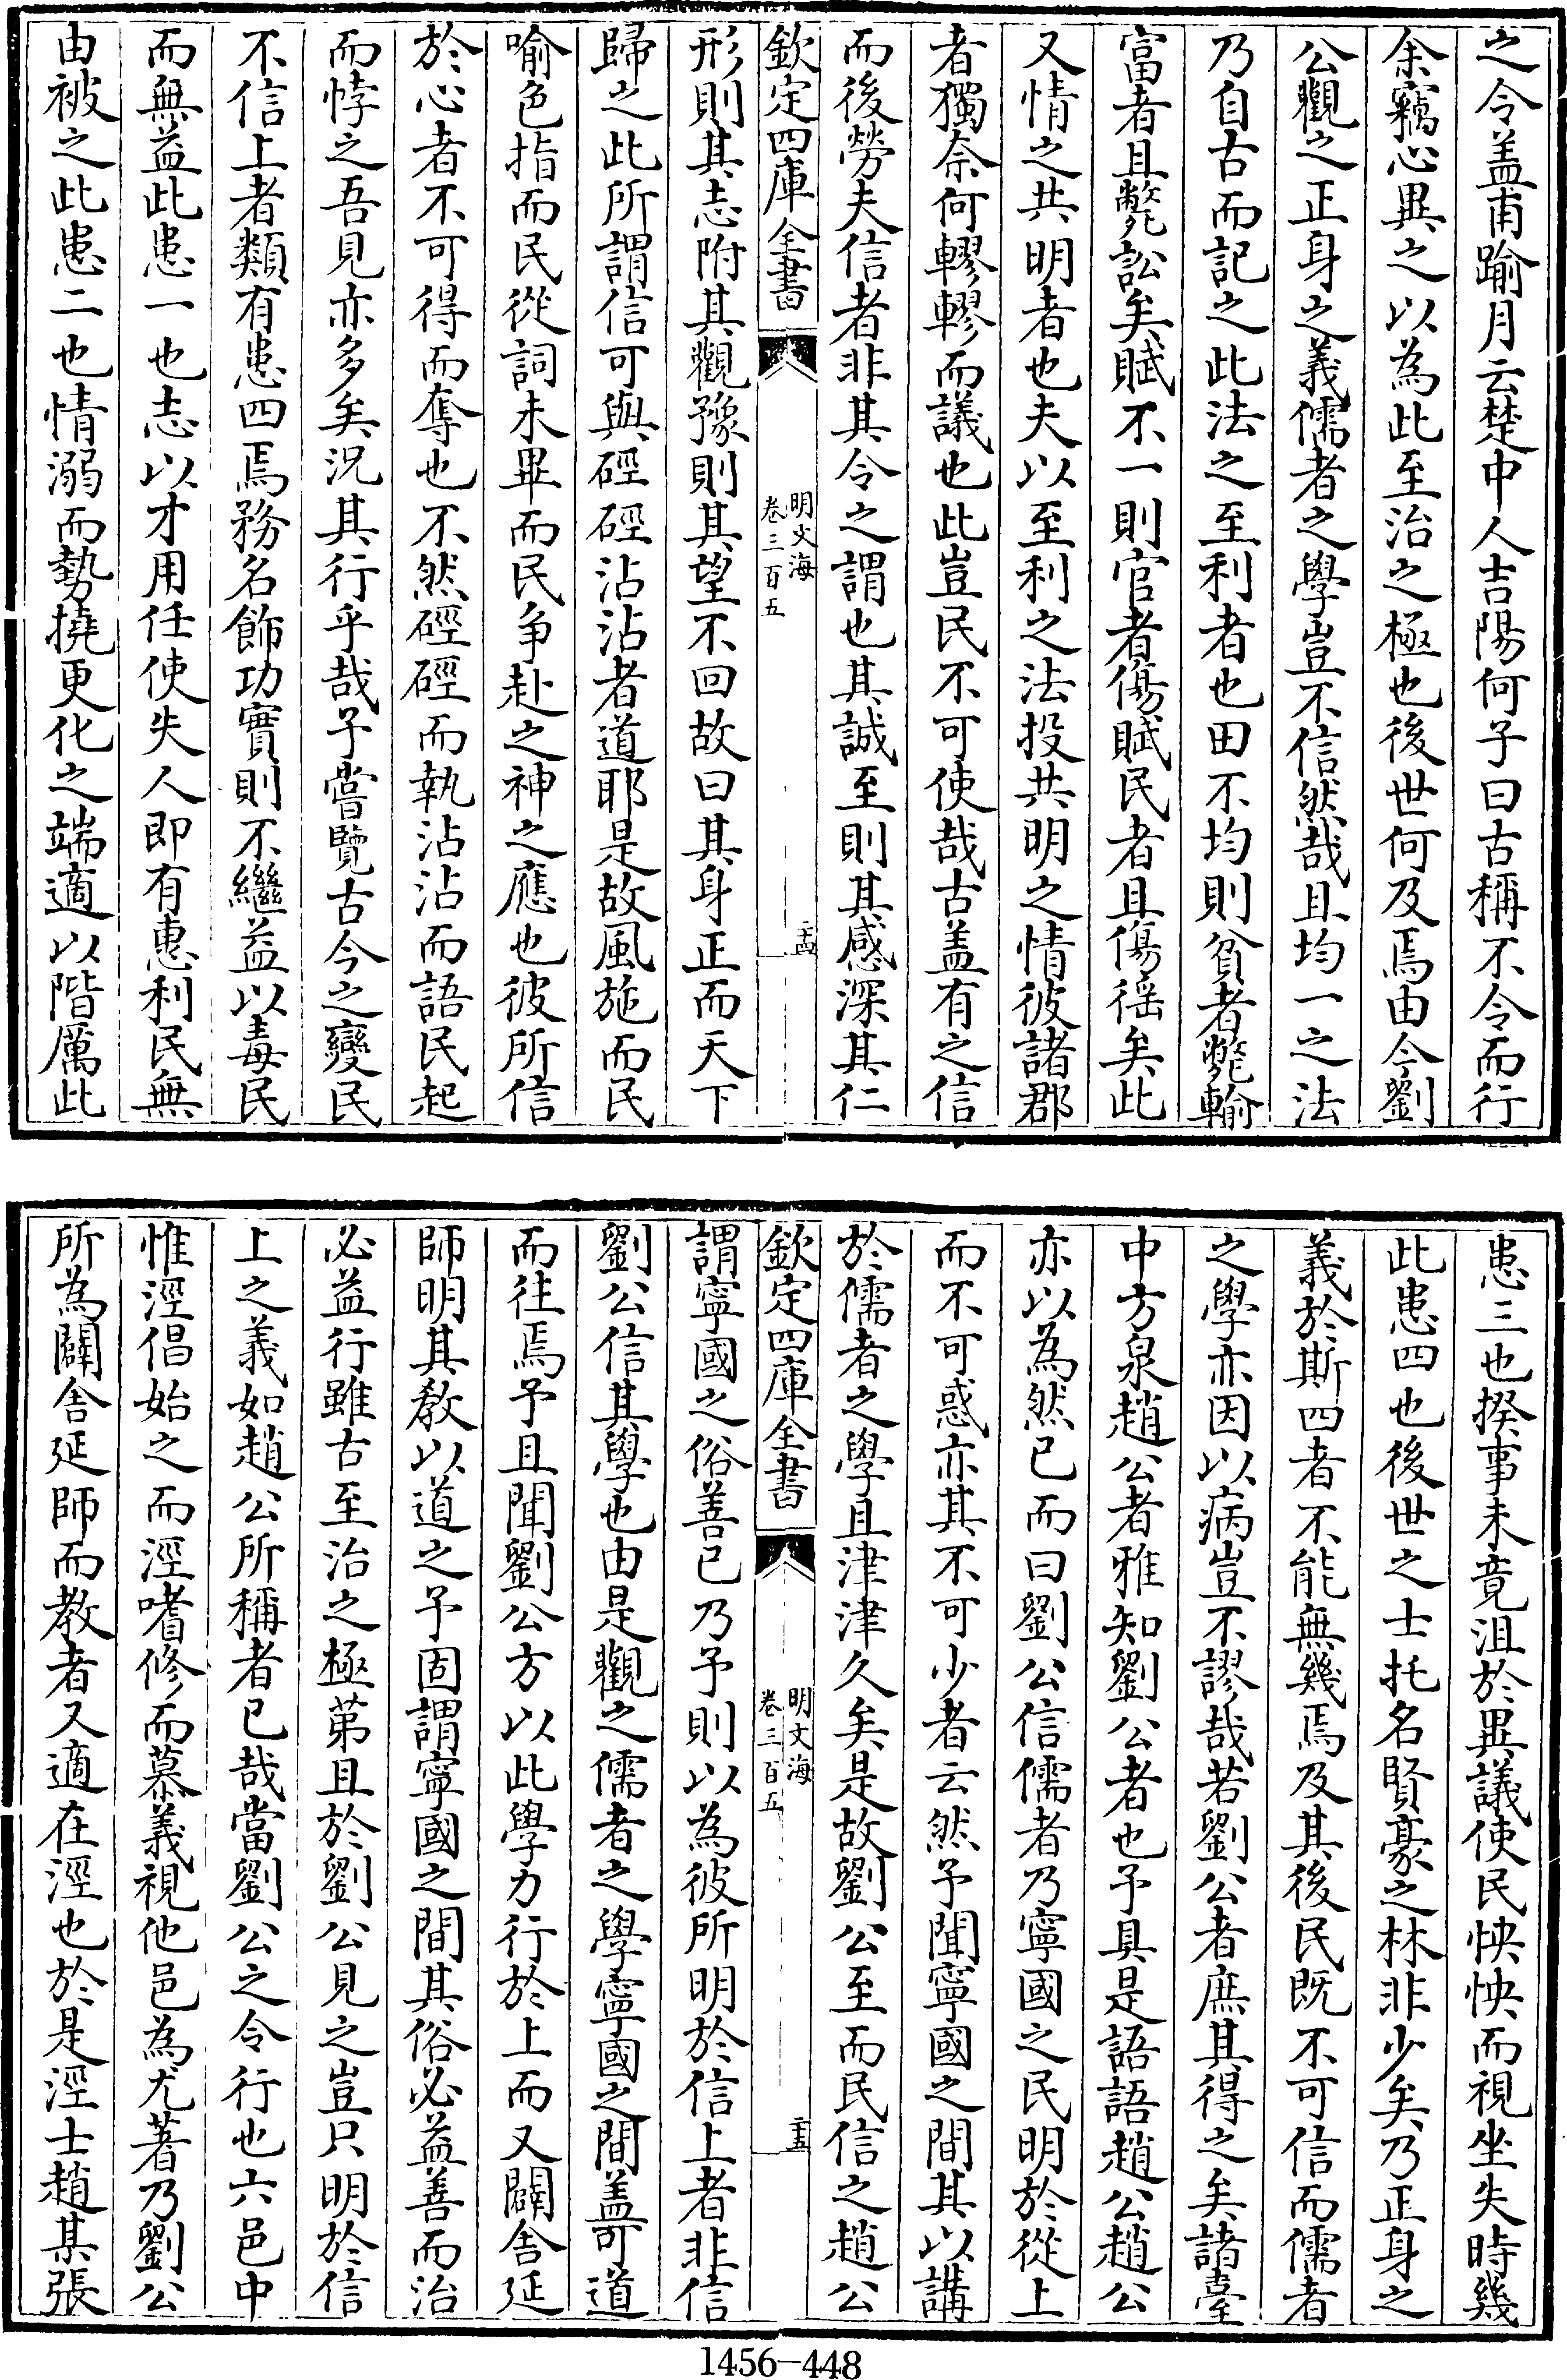 之令盖甫踰月云楚中人吉陽何子曰古稱不令而行
余竊心異之以為此至治之極也後世何及焉由今劉
公觀之正身之義儒者之學豈不信然哉且均一之法
乃自古而記之此法之至利者也田不均則貧者斃輸
富者且斃訟矣賦不一則官者傷賦民者且傷徭矣此
又情之共明者也夫以至利之法投共明之情彼諸郡
者獨奈何轇轇而議也此豈民不可使哉古盖有之信
而後勞夫信者非其令之謂也其誠至則其感深其仁
欽定四庫全書
明文海
卷三百五
二十四
形則其志附其觀豫則其望不回故曰其身正而天下
歸之此所謂信可與硜硜沾沾者道耶是故風施而民
喻色指而民從詞未畢而民争赴之神之應也彼所信
於心者不可得而奪也不然硜硜而執沾沾而語民起
而悖之吾見亦多矣況其行乎哉予嘗覽古今之變民
不信上者類有患四焉務名飾功實則不繼益以毒民
而無益此患一也志以才用任使失人即有惠利民無
由被之此患二也情溺而勢撓更化之端適以階厲此
患三也揆事未竟沮於異議使民怏怏而視坐失時幾
此患四也後世之士托名賢豪之林非少矣乃正身之
義於斯四者不能無幾焉及其後民既不可信而儒者
之學亦因以病豈不謬哉若劉公者庶其得之矣諸臺
中方泉趙公者雅知劉公者也予具是語語趙公趙公
亦以為然已而曰劉公信儒者乃寧國之民明於從上
而不可惑亦其不可少者云然予聞寧國之間其以講
於儒者之學且津津久矣是故劉公至而民信之趙公
欽定四庫全書
明文海
卷三百五
二十五
謂寧國之俗善已乃予則以為彼所明於信上者非信
劉公信其學也由是觀之儒者之學寧國之間盖可道
而往焉予且聞劉公方以此學力行於上而又闢舍延
師明其教以道之予固謂寧國之間其俗必益善而治
必益行雖古至治之極苐且於劉公見之豈只明於信
上之義如趙公所稱者已哉當劉公之令行也六邑中
惟涇倡始之而涇嗜修而慕義視他邑為尤著乃劉公
所為闢舍延師而教者又適在涇也於是涇士趙某張
1456-448